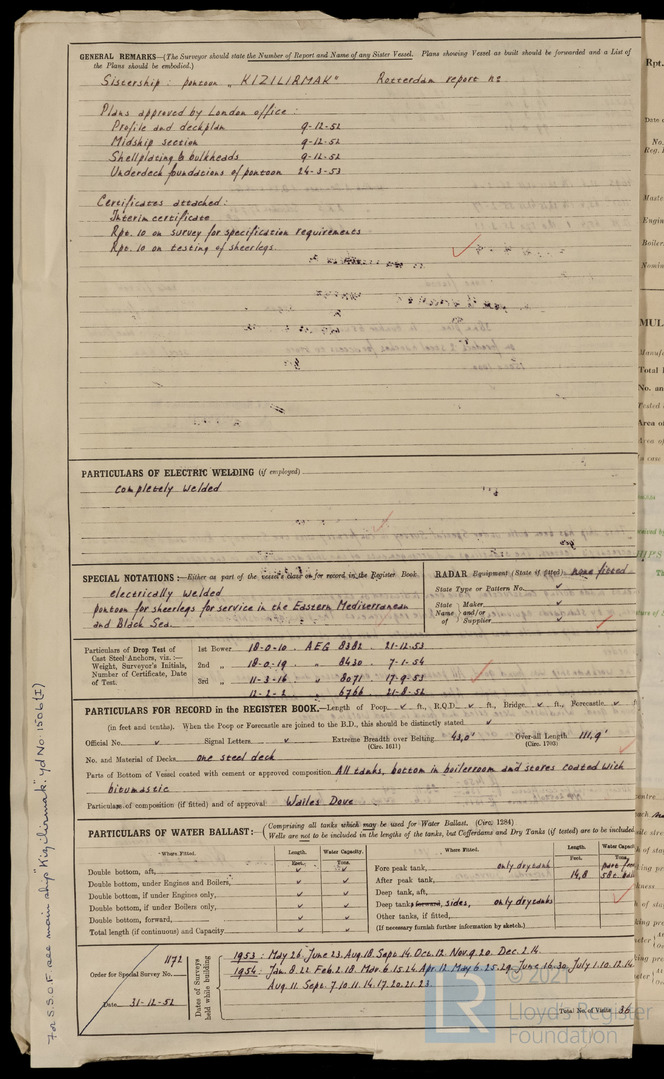 GENERAL REMARKS—(The Surveyor should state the Number of Report and Name of any Sister Vessel. Plans showing Vessel as built should be forwarded and a List of
the Plans should be embodied.)
Sistership: pontoon „KIZILIRMAK" Rotterdam report No
Plans approved by London office:
Profile and deckplan 9-12-52
Midship section 9-12-52
Shellplating & bulkheads 9-12-52
Underdeck foundations of pontoon 24-3-53
Certificates attached:
Interim certificate
Rpt. 10 on survey for specification requirements
Rpt. 10 on testing of sheerlegs.
PARTICULARS OF ELECTRIC WELDING (if employed)
Completely welded
SPECIAL NOTATIONS:—Either as part of the vessel's class or for record in the Register Book
electrically welded
pontoon for sheerlegs for service in the Eastern Mediterranean
and Black Sea.
RADAR Equipment (State if fitted) none fitted
State Type or Pattern No.
State Name of Maker and/or Supplier
Particulars of Drop Test of
Cast Steel Anchors, viz.:—
Weight, Surveyor's Initials,
Number of Certificate, Date
of Test.
1st Bower 18-0-10 AEG 8382 21-12-53
2nd „ 18-0-19 „ 8420 7-1-54
3rd „ 11-3-16 „ 8071 17-9-53
12-2-2 6766 21-8-52
PARTICULARS FOR RECORD in the REGISTER BOOK.—Length of Poop ft., R.Q.D. ft., Bridge ft., Forecastle
(in feet and tenths). When the Poop or Forecastle are joined to the B.D., this should be distinctly stated
Official No. Signal Letters Extreme Breadth over Belting 43,0' Over-all Length 111,9'
(Circ. 1611) (Circ. 1703)
No. and Material of Decks one steel deck
Parts of Bottom of Vessel coated with cement or approved composition All tanks, bottom in boilerroom and stores coated with
bioumastic
Particulars of composition (if fitted) and of approval Wailes Dove
PARTICULARS OF WATER BALLAST:— (Comprising all tanks which may be used for Water Ballast. (Circ. 1284)
Wells are not to be included in the lengths of the tanks, but Cofferdams and Dry Tanks (if tested) are to be included
Where Fitted. Length. Water Capacity. Where Fitted. Length. Water Capacity
Feet. Tons. Feet. Tons.
Double bottom, aft,
Double bottom, under Engines and Boilers,
Double bottom, if under Engines only,
Double bottom, if under Boilers only,
Double bottom, forward,
Total length (if continuous) and Capacity
Fore peak tank, only dry tank
After peak tank, 14,8
Deep tank, aft,
Deep tank forward, sides, only dry tanks
Other tanks, if fitted,
(If necessary furnish further information by sketch.)
1172
Order for Special Survey No.
Date 31-12-52
Dates of Surveys held while building
1953: May 26. June 23. Aug. 18. Sept. 14. Oct. 12. Nov. 9. 20. Dec. 2. 14.
1954: Jan. 8. 22. Feb. 2. 18. Mar. 6. 15. 24. Apr. 12. May 6. 25. 29. June 16. 30. July 1. 10. 12. 14.
Aug. 11. Sept. 7. 10. 11. 14. 17. 20. 21. 23.
Total No. of Visits 36
For S.S.O.F. see main ship "Kizilirmak". yd No: 1506 (I)
© 2021
LR
Lloyd's Register
Foundation
Rpt.